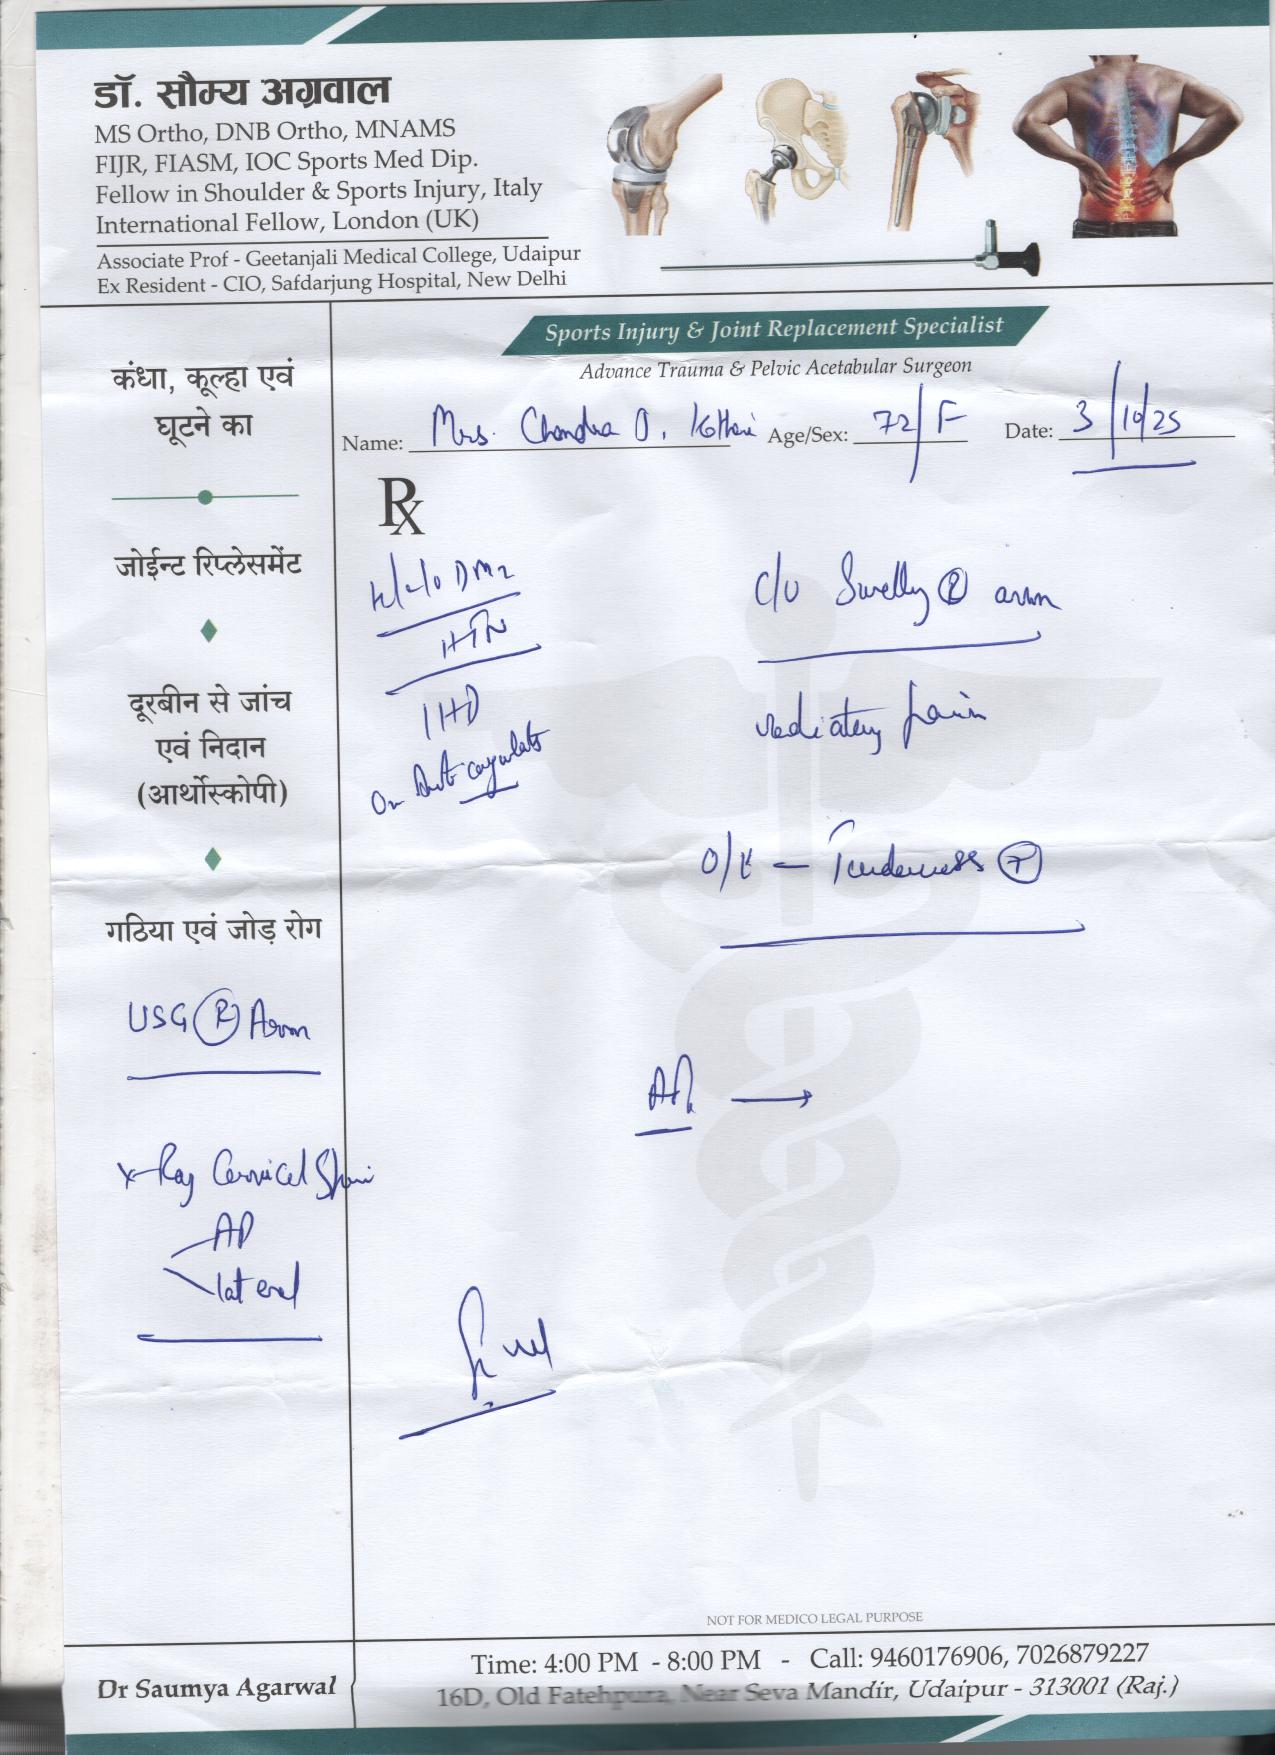 डॉ. सौम्य अग्रवाल
MS Ortho, DNB Ortho, MNAMS
FIJR, FIASM, IOC Sports Med Dip.
Fellow in Shoulder & Sports Injury, Italy
International Fellow, London (UK)
Associate Prof - Geetanjali Medical College, Udaipur
Ex Resident - CIO, Safdarjung Hospital, New Delhi
Sports Injury & Joint Replacement Specialist
Advance Trauma & Pelvic Acetabular Surgeon
Name: Mrs. Chandra D. Kothari Age/Sex: 72/F Date: 3/10/25
कंधा, कूल्हा एवं
घूटने का
जोईन्ट रिप्लेसमेंट
दूरबीन से जांच
एवं निदान
(आर्थोस्कोपी)
गठिया एवं जोड़ रोग
USG (R) Arm
X-Ray Cervical Spine
AP
lateral
Rx
K/c/o DM2
HTN
IHD
On Anti coagulants
c/o Swelling (R) arm
radiating pain
O/E — Tenderness (+)
NOT FOR MEDICO LEGAL PURPOSE
Dr Saumya Agarwal
Time: 4:00 PM - 8:00 PM - Call: 9460176906, 7026879227
16D, Old Fatehpura, Near Seva Mandir, Udaipur - 313001 (Raj.)